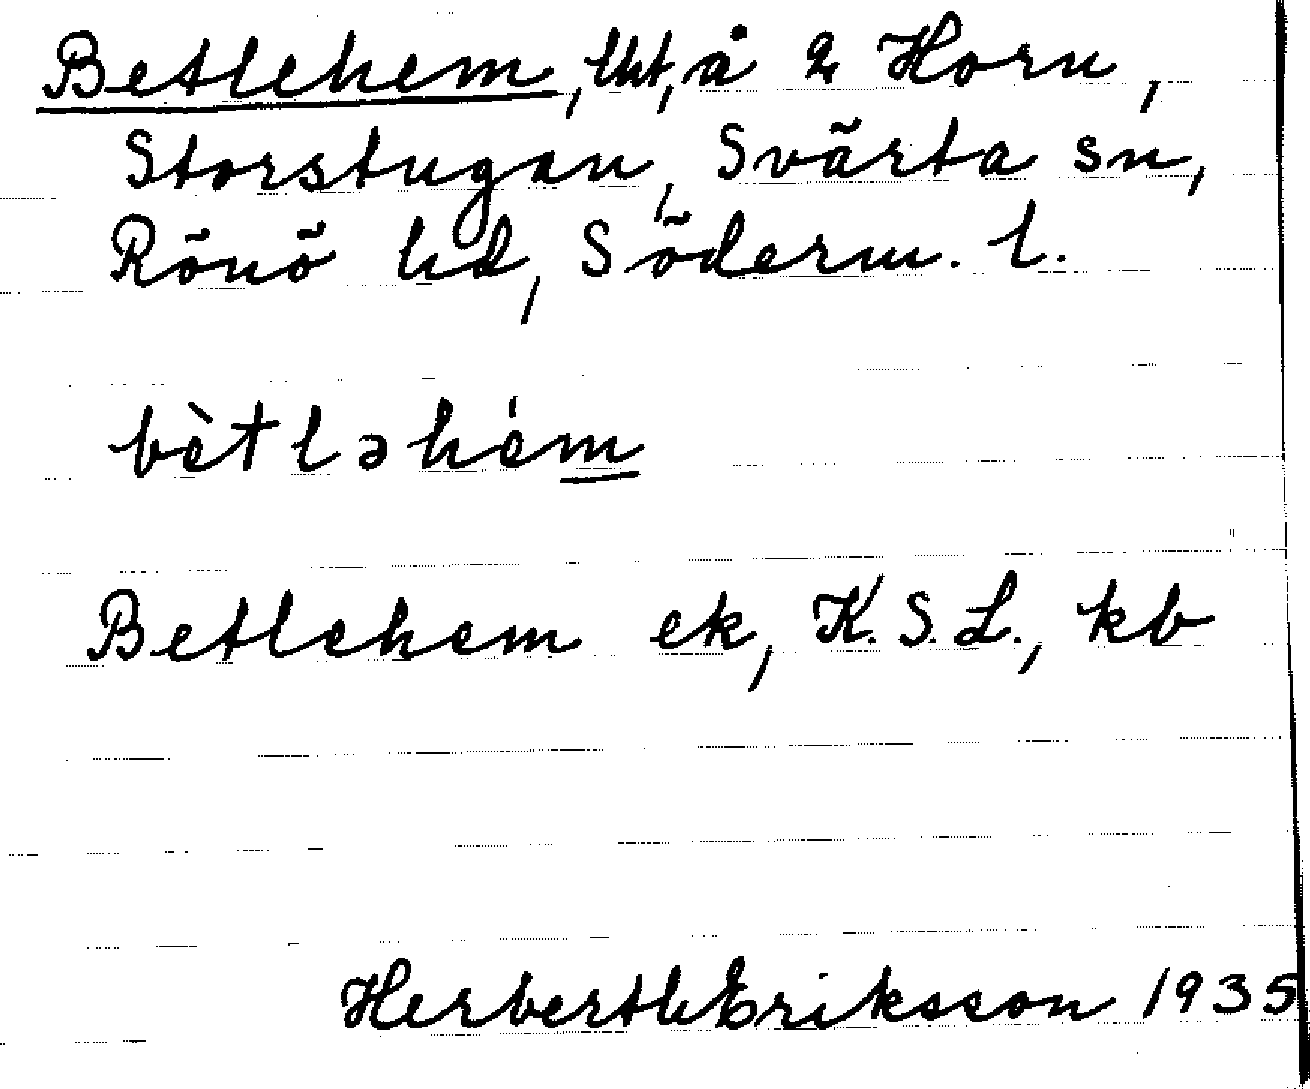 Betlehem, lht, å 2 Horn,
Storstugan, Svärta sn,
Rönö hd, Söderm. l.
bètləhém
Betlehem ek, K.S.L., kb
Herbert Eriksson 1935